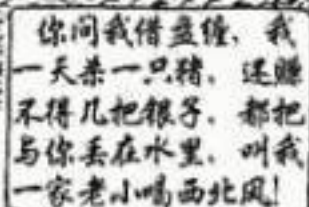 你问我借盘缠，我
一天杀一只猪，还赚
不得几把银子，都把
与你丢在水里，叫我
一家老小喝西北风！